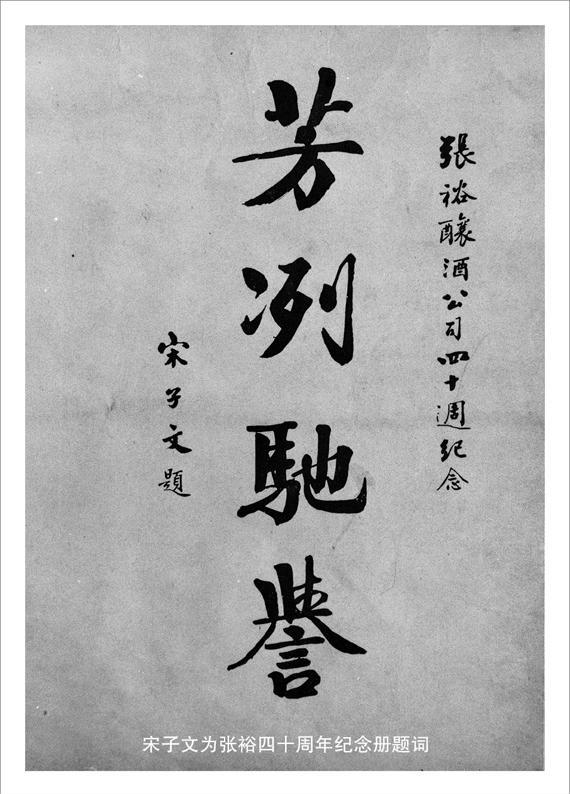 張裕釀酒公司四十週紀念
芳冽馳譽
宋子文題
宋子文为张裕四十周年纪念册题词